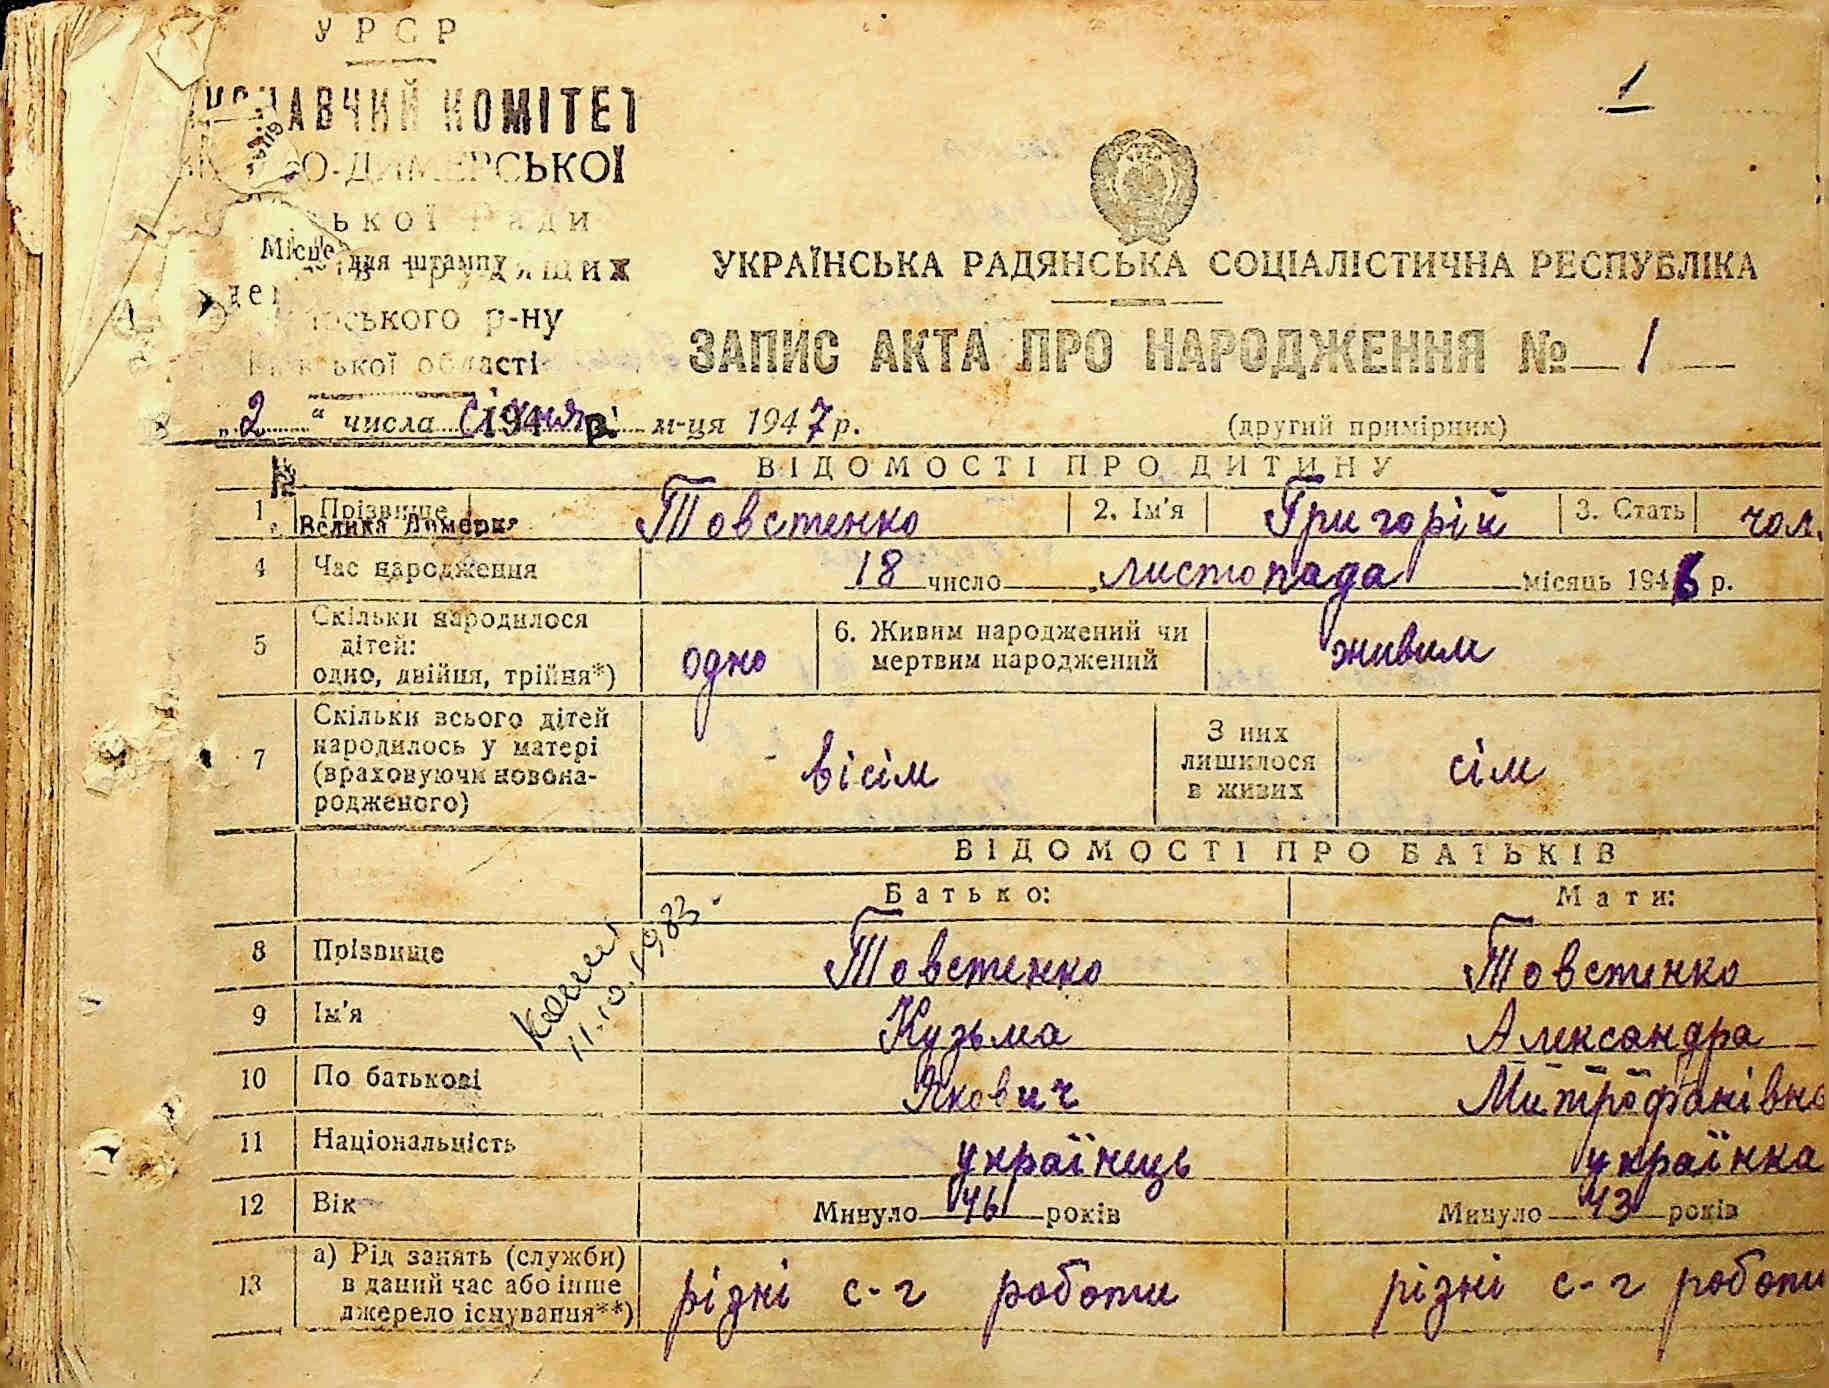 УРСР
КОМІТЕТ
1
Місце для штампу
р-ну
області
УКРАЇНСЬКА РАДЯНСЬКА СОЦІАЛІСТИЧНА РЕСПУБЛІКА
ЗАПИС АКТА ПРО НАРОДЖЕННЯ № 1
„2“ числа січня м-ця 1947 р.
(другий примірник)
194 р.
ВІДОМОСТІ ПРО ДИТИНУ
1 Прізвище Товстенко 2. Ім'я Григорій 3. Стать чол.
с. Велика Димерка
4 Час народження 18 число листопада місяць 1946 р.
5 Скільки народилося дітей: одно, двійня, трійня*) одно 6. Живим народжений чи мертвим народжений живим
7 Скільки всього дітей народилось у матері (враховуючи новонародженого) вісім З них лишилося в живих сім
ВІДОМОСТІ ПРО БАТЬКІВ
Батько: Мати:
8 Прізвище Товстенко Товстенко
9 Ім'я Кузьма Александра
10 По батькові Якович Митрофанівна
11 Національність українець українка
12 Вік Минуло 46 років Минуло 43 років
13 а) Рід занять (служби) в даний час або інше джерело існування**) різні с-г роботи різні с-г роботи
11.10.1983